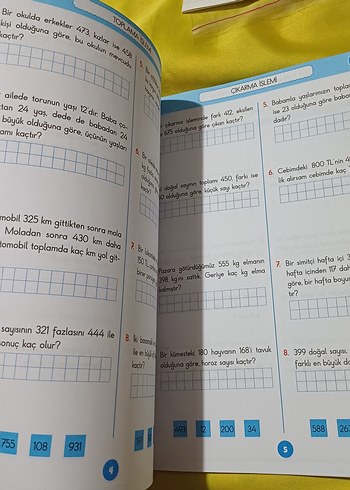 TOPLAMA İŞLEMİ
Bir okulda erkekler 473, kızlar ise 458
kişi olduğuna göre, bu okulun mevcudu
kaçtır?
ailede torunun yaşı 12'dir. Baba, ço-
tan 24 yaş, dede de babadan 24
büyük olduğuna göre, üçünün yaşları
amı kaçtır?
mobil 325 km gittikten sonra mola
Moladan sonra 430 km daha
tomobil toplamda kaç km yol git-
sayısının 321 fazlasını 444 ile
sonuç kaç olur?
755 108 931
5. Bir
6.
7.
150
8. İki basamaklı
ile en büyük
kaçtır?
4
ÇIKARMA İŞLEMİ
çıkarma işleminde fark 412, eksilen
675 olduğuna göre çıkan kaçtır?
doğal sayının toplamı 450, farkı ise
0 olduğuna göre, küçük sayı kaçtır?
Pazara götürdüğümüz 555 kg elmanın
198 kg'nı sattık. Geriye kaç kg elma
kalmıştır?
Bir kümesteki 180 hayvanın 168'i tavuk
olduğuna göre, horoz sayısı kaçtır?
12 200 34
5. Babamla yaşlarımızın toplamı
ise 23 olduğuna göre babam
dadır?
6. Cebimdeki 800 TL'nin
lik alırsam cebimde kaç
7. Bir simitçi hafta içi
hafta içinden 117 daha
göre, bir hafta boyunca
tır?
8. 399 doğal sayısı,
farklı en büyük do
588
5